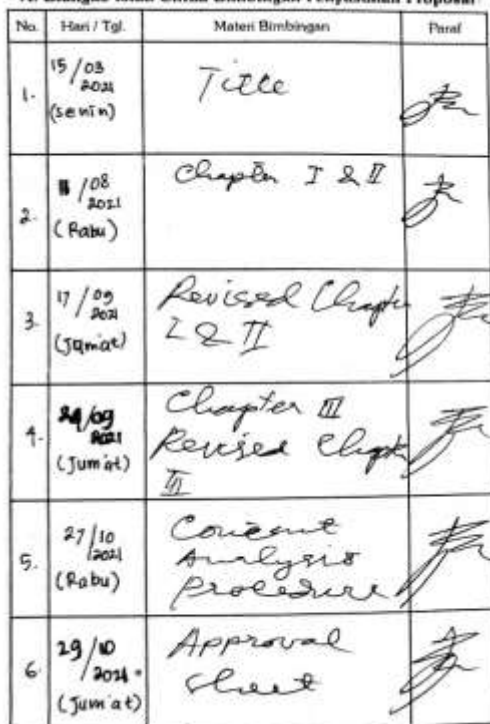 Penyusunan Proposal
No.
Hari / Tgl.
Materi Bimbingan
Paraf
1.
15/03
2021
(senin)
Title
2.
/08
2021
(Rabu)
Chapter I & II
3.
17/09
2021
(Jum'at)
Revised Chapte
I & II
4.
24/09
2021
(Jum'at)
Chapter III
Revised Chapte
III
5.
27/10
2021
(Rabu)
Analysis
Procedure
6.
29/10
2021
(Jum'at)
Approval
Sheet